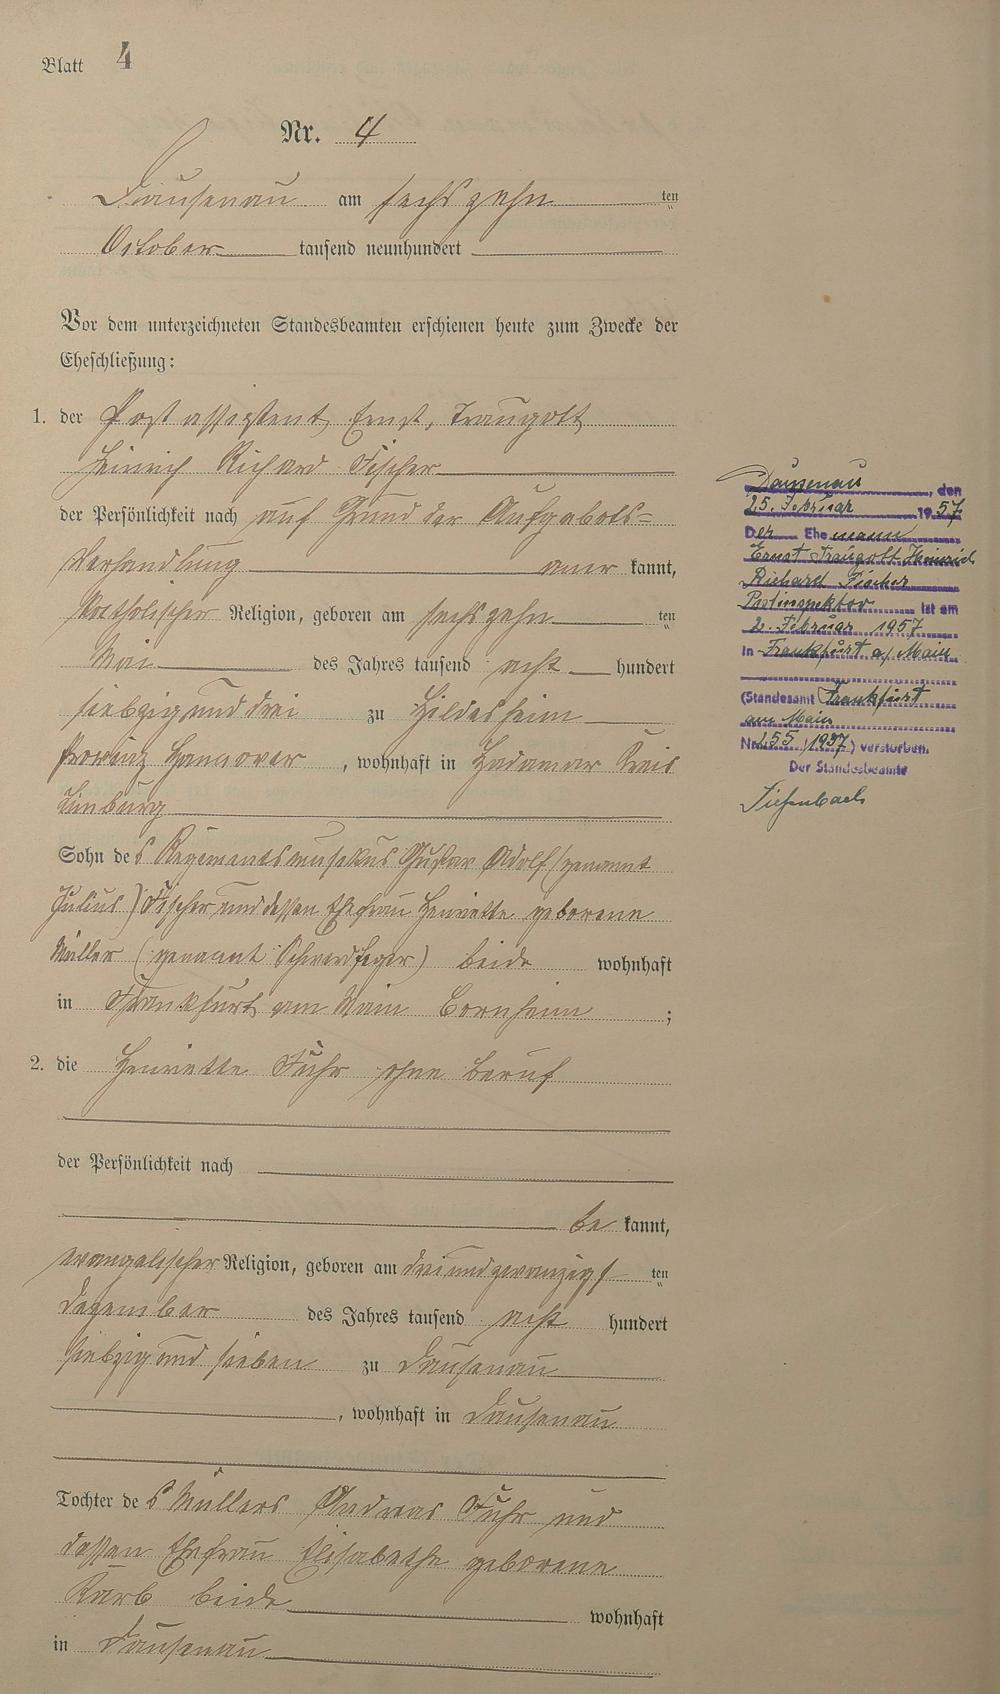 Blatt 4
Nr. 4
Dausenau am sechszehn ten
October tausend neunhundert
Vor dem unterzeichneten Standesbeamten erschienen heute zum Zwecke der
Eheschließung:
1. der Postassistent Ernst, Traugott
Heinrich Richard Fischer
der Persönlichkeit nach auf Grund der Aufgebots-
verhandlung aner kannt,
katholischer Religion, geboren am sechszehn ten
Mai des Jahres tausend acht hundert
siebzig und drei zu Hildesheim
Provinz Hannover, wohnhaft in Hadamar Kreis
Limburg
Sohn des Regimentsmusikus Gustav Adolf (genannt
Julius) Fischer und dessen Ehefrau Henriette geborene
Müller (genannt Schwerdfeger) beide wohnhaft
in Frankfurt am Main Bornheim ;
2. die Henriette Fuhr ohne Beruf
der Persönlichkeit nach
be kannt,
evangelischer Religion, geboren am dreiundzwanzigs ten
Dezember des Jahres tausend acht hundert
siebzig und sieben zu Dausenau
, wohnhaft in Dausenau
Tochter des Müllers Andreas Fuhr und
dessen Ehefrau Elisabethe geborene
Karb beide wohnhaft
in Dausenau
Dausenau, den
25. Februar 1957
Der Ehemann
Ernst Traugott Heinrich
Richard Fischer
Postinspektor ist am
2. Februar 1957
in Frankfurt a/ Main
(Standesamt Frankfurt
am Main
Nr. 255 /1957) verstorben.
Der Standesbeamte